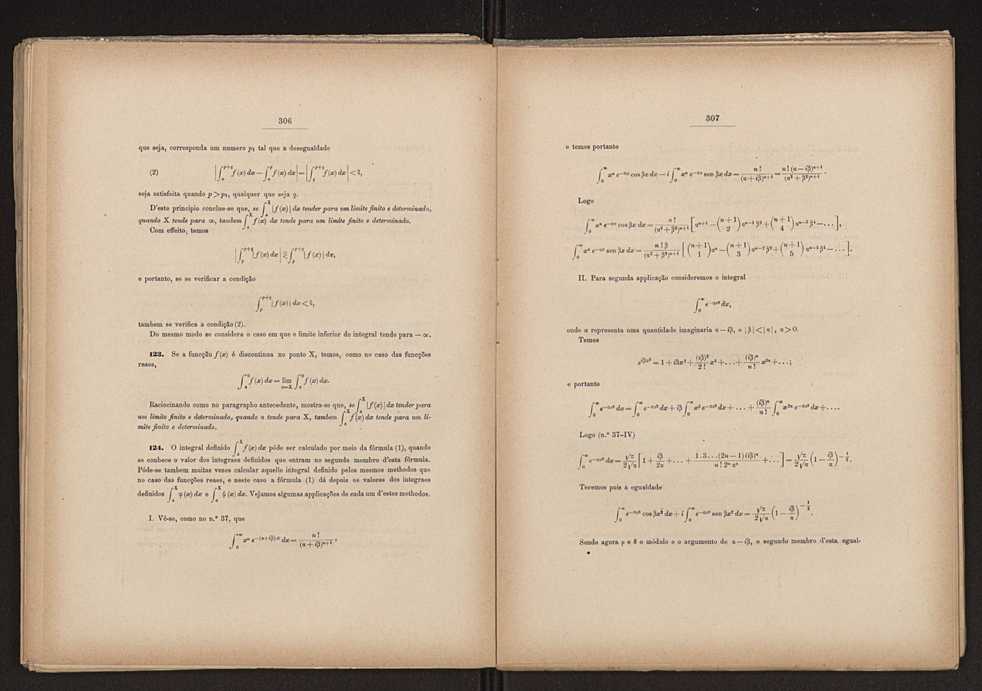 306
que seja, corresponda um numero p₁ tal que a desegualdade
(2) |∫ₐ^{p+q} f(x) dx − ∫ₐ^{p} f(x) dx| = |∫ₚ^{p+q} f(x) dx| < δ,
seja satisfeita quando p > p₁, qualquer que seja q.
D'este principio conclue-se que, se ∫ₐ^X |f(x)| dx tender para um limite finito e determinado,
quando X tende para ∞, tambem ∫ₐ^X f(x) dx tende para um limite finito e determinado.
Com effeito, temos
|∫ₚ^{p+q} f(x) dx| ≦ ∫ₚ^{p+q} |f(x)| dx,
e portanto, se se verificar a condição
∫ₚ^{p+q} |f(x)| dx < δ,
tambem se verifica a condição (2).
Do mesmo modo se considera o caso em que o limite inferior do integral tende para − ∞.
123. Se a funcção f(x) é discontinua no ponto X, temos, como no caso das funcções
reaes,
Raciocinando como no paragrapho antecedente, mostra-se que, se ∫ₐ^X |f(x)| dx tender para
um limite finito e determinado, quando a tende para X, tambem ∫ₐ^X f(x) dx tende para um li-
mite finito e determinado.
124. O integral definido ∫ₐ^X f(x) dx póde ser calculado por meio da fórmula (1), quando
se conhece o valor dos integraes definidos que entram no segundo membro d'esta fórmula.
Póde-se tambem muitas vezes calcular aquelle integral definido pelos mesmos methodos que
no caso das funcções reaes, e neste caso a fórmula (1) dá depois os valores dos integraes
definidos ∫ₐ^X φ(x) dx e ∫ₐ^X ψ(x) dx. Vejamos algumas applicações de cada um d'estes methodos.
I. Vê-se, como no n.º 37, que
∫₀^{+∞} xⁿ e^{−(α+iβ)x} dx = n! / (α+iβ)^{n+1},
307
e temos portanto
∫₀^∞ xⁿ e^{−αx} cos βx dx − i ∫₀^∞ xⁿ e^{−αx} sen βx dx = n! / (α+iβ)^{n+1} = n! (α−iβ)^{n+1} / (α²+β²)^{n+1}.
Logo
∫₀^∞ xⁿ e^{−αx} cos βx dx = n! / (α²+β²)^{n+1} [α^{n+1} − (n+1 2) α^{n−1} β² + (n+1 4) α^{n−3} β⁴ − ...],
∫₀^∞ xⁿ e^{−αx} sen βx dx = n! β / (α²+β²)^{n+1} [(n+1 1) αⁿ − (n+1 3) α^{n−2} β² + (n+1 5) α^{n−4} β⁴ − ...].
II. Para segunda applicação consideremos o integral
∫₀^∞ e^{−ax²} dx,
onde a representa uma quantidade imaginaria α − iβ, e |β| < |α|, α > 0.
Temos
e^{iβx²} = 1 + iβx² + (iβ)²/2! x⁴ + ... + (iβ)ⁿ/n! x^{2n} + ...;
e portanto
∫₀^∞ e^{−ax²} dx = ∫₀^∞ e^{−αx²} dx + iβ ∫₀^∞ x² e^{−αx²} dx + ... + (iβ)ⁿ/n! ∫₀^∞ x^{2n} e^{−αx²} dx + ...
Logo (n.º 37-IV)
∫₀^∞ e^{−ax²} dx = √π/2√α [1 + iβ/2α + ... + 1.3...(2n−1)(iβ)ⁿ / n! 2ⁿ αⁿ + ...] = √π/2√α (1 − iβ/α)^{−½}.
Teremos pois a egualdade
∫₀^∞ e^{−αx²} cos βx² dx + i ∫₀^∞ e^{−αx²} sen βx² dx = √π/2√α (1 − iβ/α)^{−½}.
Sendo agora ρ e θ o módulo e o argumento de α − iβ, o segundo membro d'esta egual-